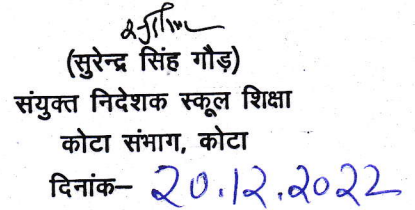 (सुरेन्द्र सिंह गौड़)
संयुक्त निदेशक स्कूल शिक्षा
कोटा संभाग, कोटा
दिनांक– 20.12.2022